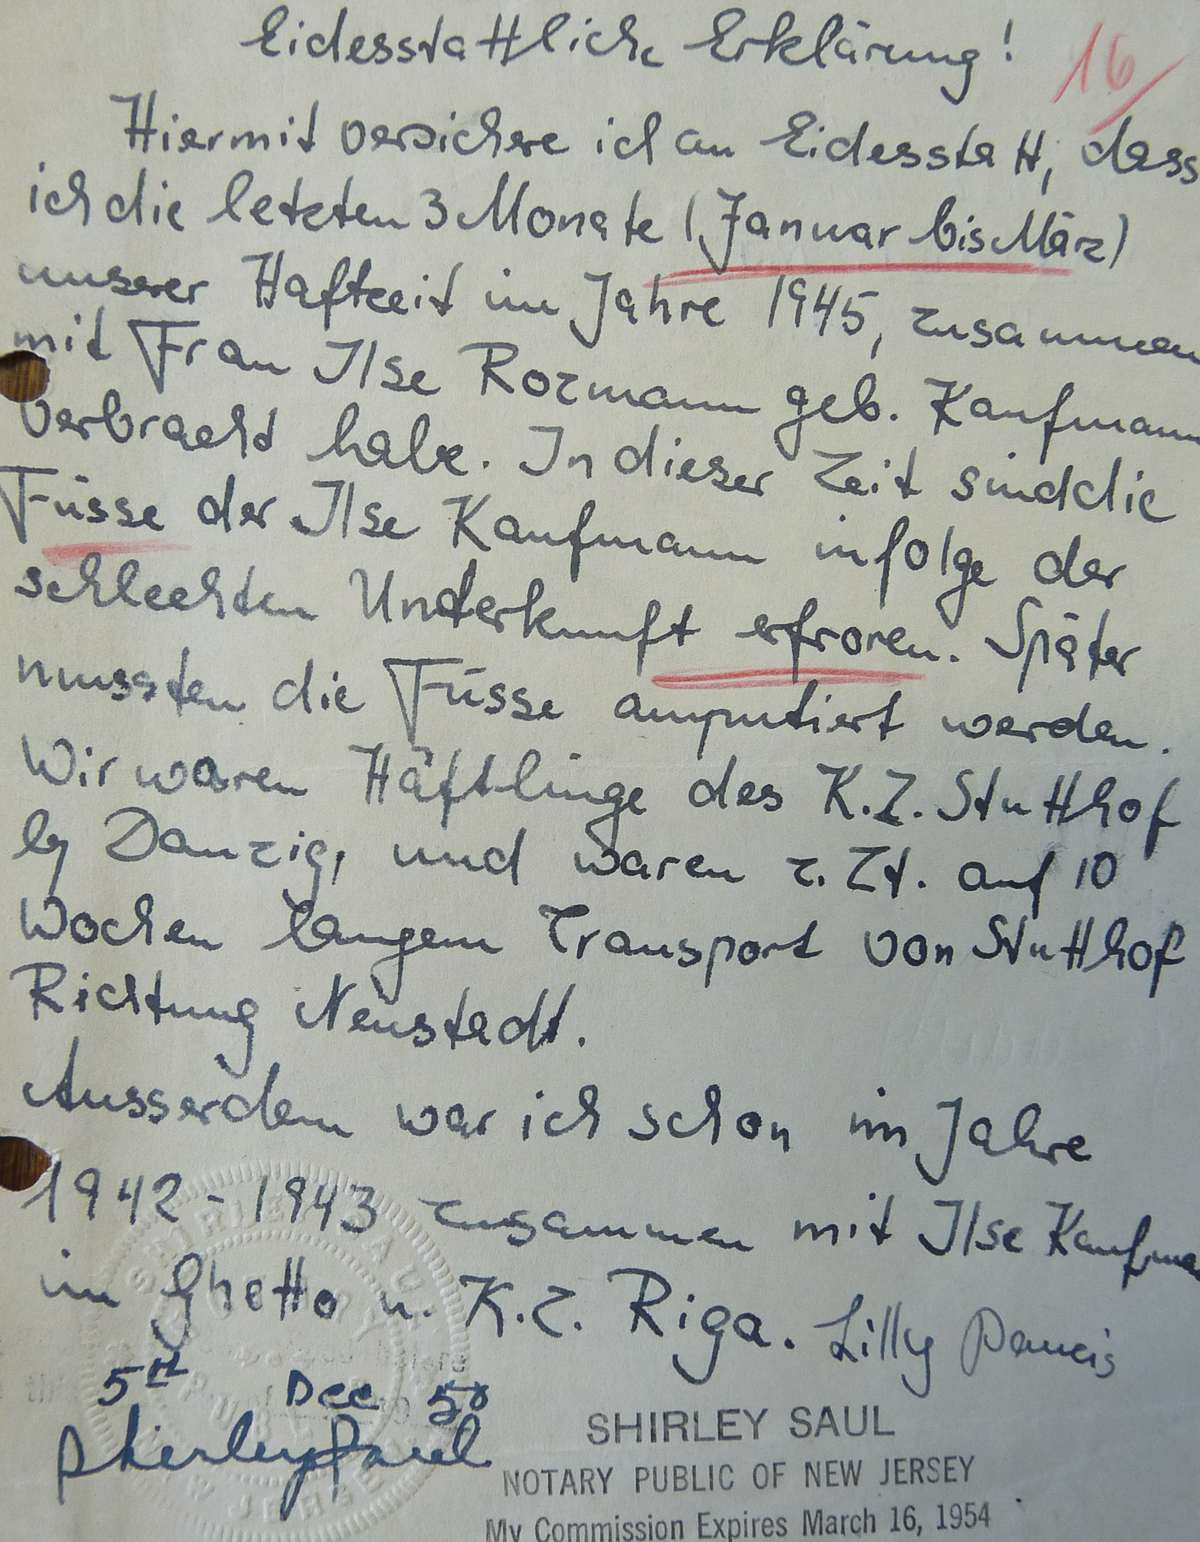 Eidesstattliche Erklärung!
16
Hiermit versichere ich an Eidesstatt, dass
ich die letzten 3 Monate (Januar bis März)
unserer Haftzeit im Jahre 1945, zusammen
mit Frau Ilse Rozmann geb. Kaufmann
verbracht habe. In dieser Zeit sind die
Füsse der Ilse Kaufmann infolge der
schlechten Unterkunft erfroren. Später
mussten die Füsse amputiert werden.
Wir waren Häftlinge des K.Z. Stutthof
by Danzig, und waren z. Zt. auf 10
Wochen langem Transport von Stutthof
Richtung Neustadt.
Ausserdem war ich schon im Jahre
1942-1943 zusammen mit Ilse Kaufma
im Ghetto u. K.Z. Riga. Lilly Pancis
5th Dec 50
Shirley Saul
SHIRLEY SAUL
NOTARY PUBLIC OF NEW JERSEY
My Commission Expires March 16, 1954